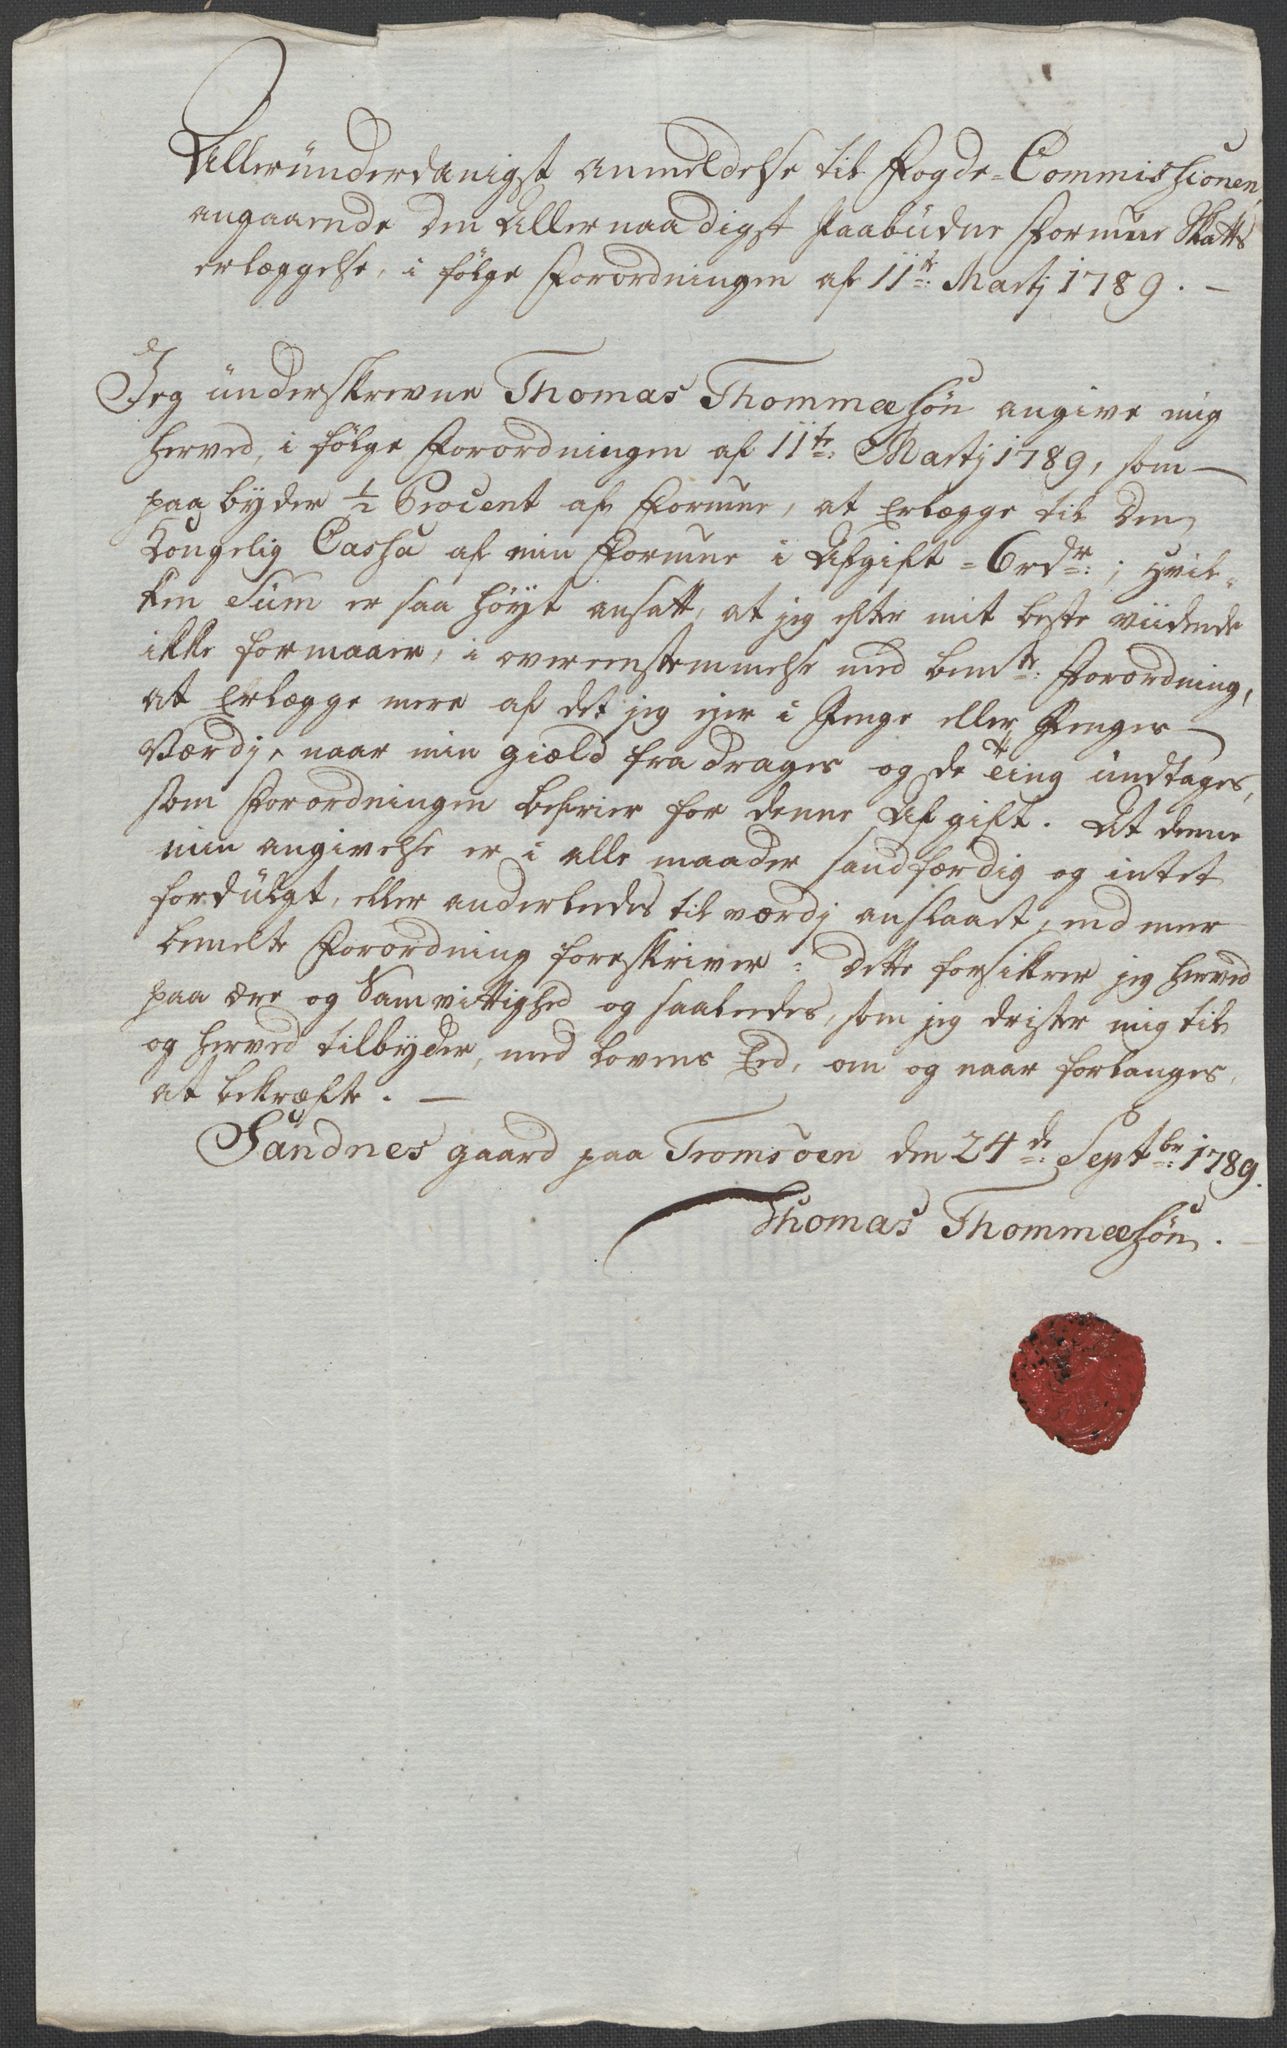 Alleründerdanigst anmeldelse til Fogde=Commissionen,
angaaende den Allernaadigst paabüdne Formue Skatts
erlæggelse, i følge Forordningen af 11te: Martj 1789. –
Jeg ünderskrevne Thomas Thommæsøn angive mig
herved, i følge Forordningen af 11te: Martj 1789, som –
paa byder ½ Procent af Formue, at Erlægge til den
Kongelig Cassa af min Formue i Afgift = 6 rdr:; hvil=
ken Süm er saa høyt ansatt, at jeg efter mit beste viidende
ikke formaaer, i overeenstemmelse med bemte: Forordning,
at Erlægge mere af det jeg ejer i Penge eller Penges
Værdj, naar min giæld fra drages og de ting ündtages,
som Forordningen befrier for denne Afgift. At denne
min angivelse er i alle maader sandfærdig og intet
fordülgt, eller anderledes til værdj anslaaet, end mer
bemelte Forordning foreskriver: dette forsikrer jeg herved
paa ære og Samvittighed og saaledes, som jeg drister mig til
og herved tilbyder, med Lovens Eed, om og naar forlanges,
at bekræfte. –
Sandnes gaard paa Tromsøen den 24de: Septbr: 1789.
Thomas Thommæsøn.